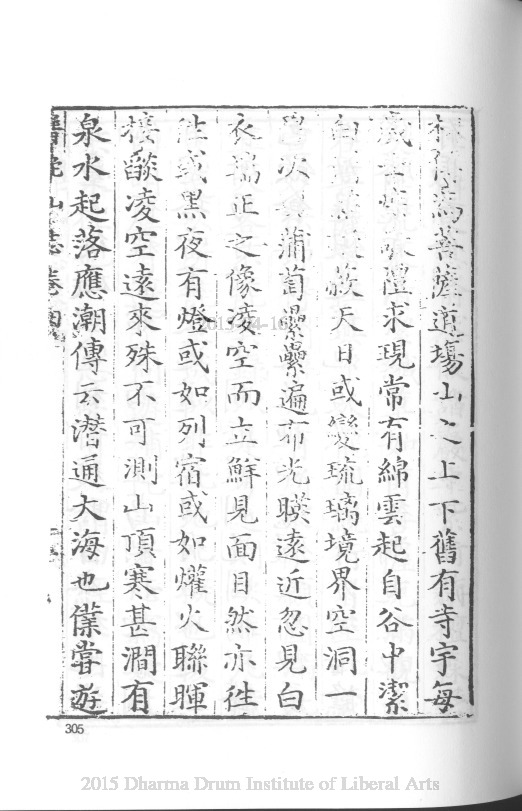 為菩薩道場山之上下舊有寺宇每
歲禮求現常有綿雲起自谷中潔
白簇天日或變琉璃境界空洞一
次蒲萄纍纍遍布光暎遠近忽見白
衣端正之像凌空而立鮮見面目然亦徃
徃或黑夜有燈或如列宿或如爟火聯暉
接燄凌空遠來殊不可測山頂寒甚澗有
泉水起落應潮傳云潛通大海也僕嘗遊
山志卷四
305
2015 Dharma Drum Institute of Liberal Arts